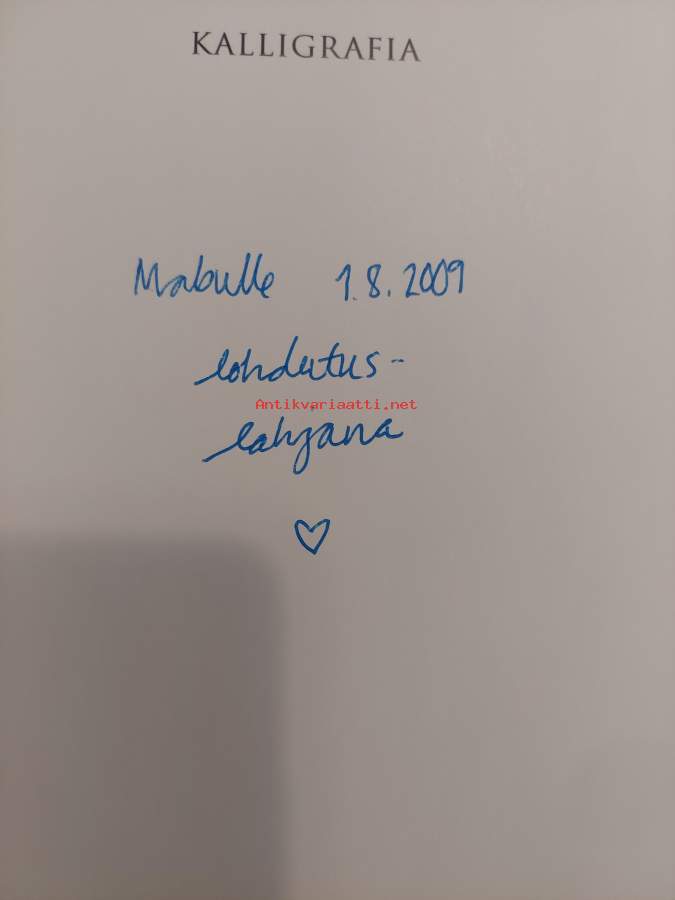 KALLIGRAFIA
Mabulle 1.8.2009
lohdutus-
Antikvariaatti.net
lahjana